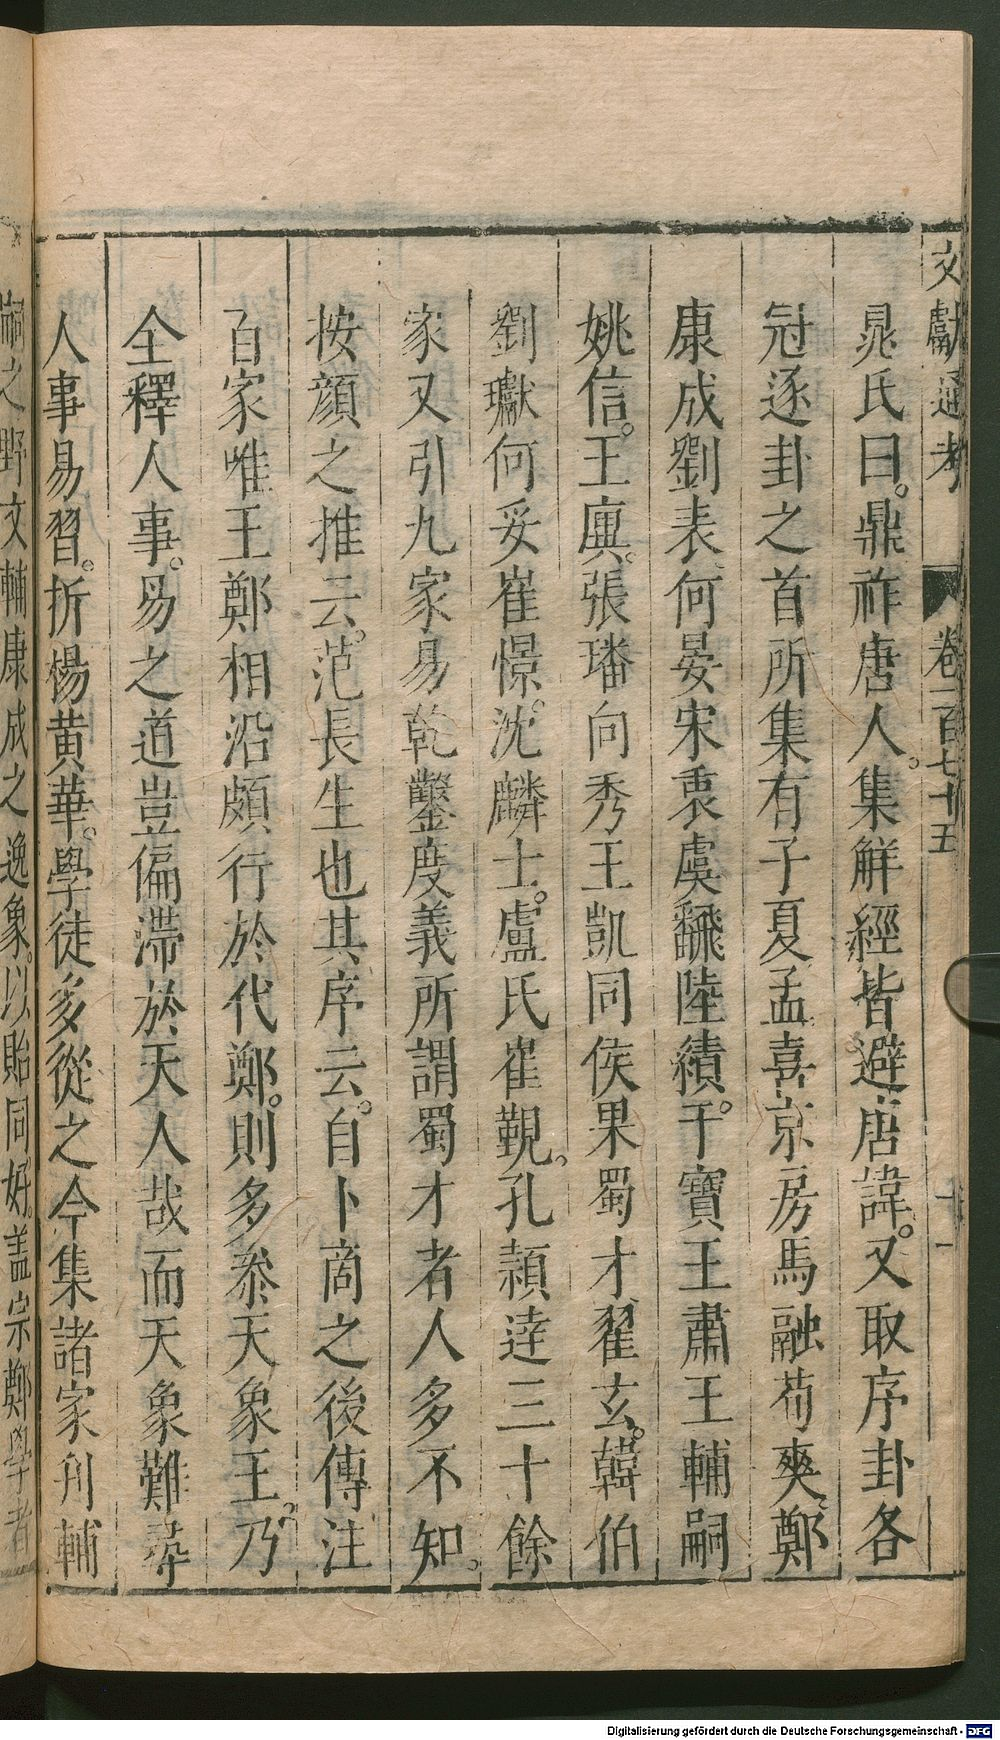 文獻通考 卷一百七十五 十一
晁氏曰。鼎祚唐人。集解經皆避唐諱。又取序卦各
冠逐卦之首所集有子夏孟喜京房馬融荀爽鄭
康成劉表何晏宋衷虞翻陸績。干寶王肅王輔嗣
姚信。王廙。張璠向秀王凱同侯果蜀才翟玄。韓伯
劉瓛何妥崔憬。沈麟士。盧氏崔覲。孔穎達三十餘
家又引九家易乾鑿度義所謂蜀才者人多不知。
按顏之推云。范長生也其序云。自卜商之後傳注
百家唯王鄭相沿頗行於代鄭。則多參天象王。乃
全釋人事。易之道豈偏滯於天人哉而天象難尋
人事易習。折楊黃華。學徒多從之今集諸家刋輔
嗣之野文輔康成之逸象。以貽同好。盖宗鄭學者
Digitalisierung gefördert durch die Deutsche Forschungsgemeinschaft - DFG